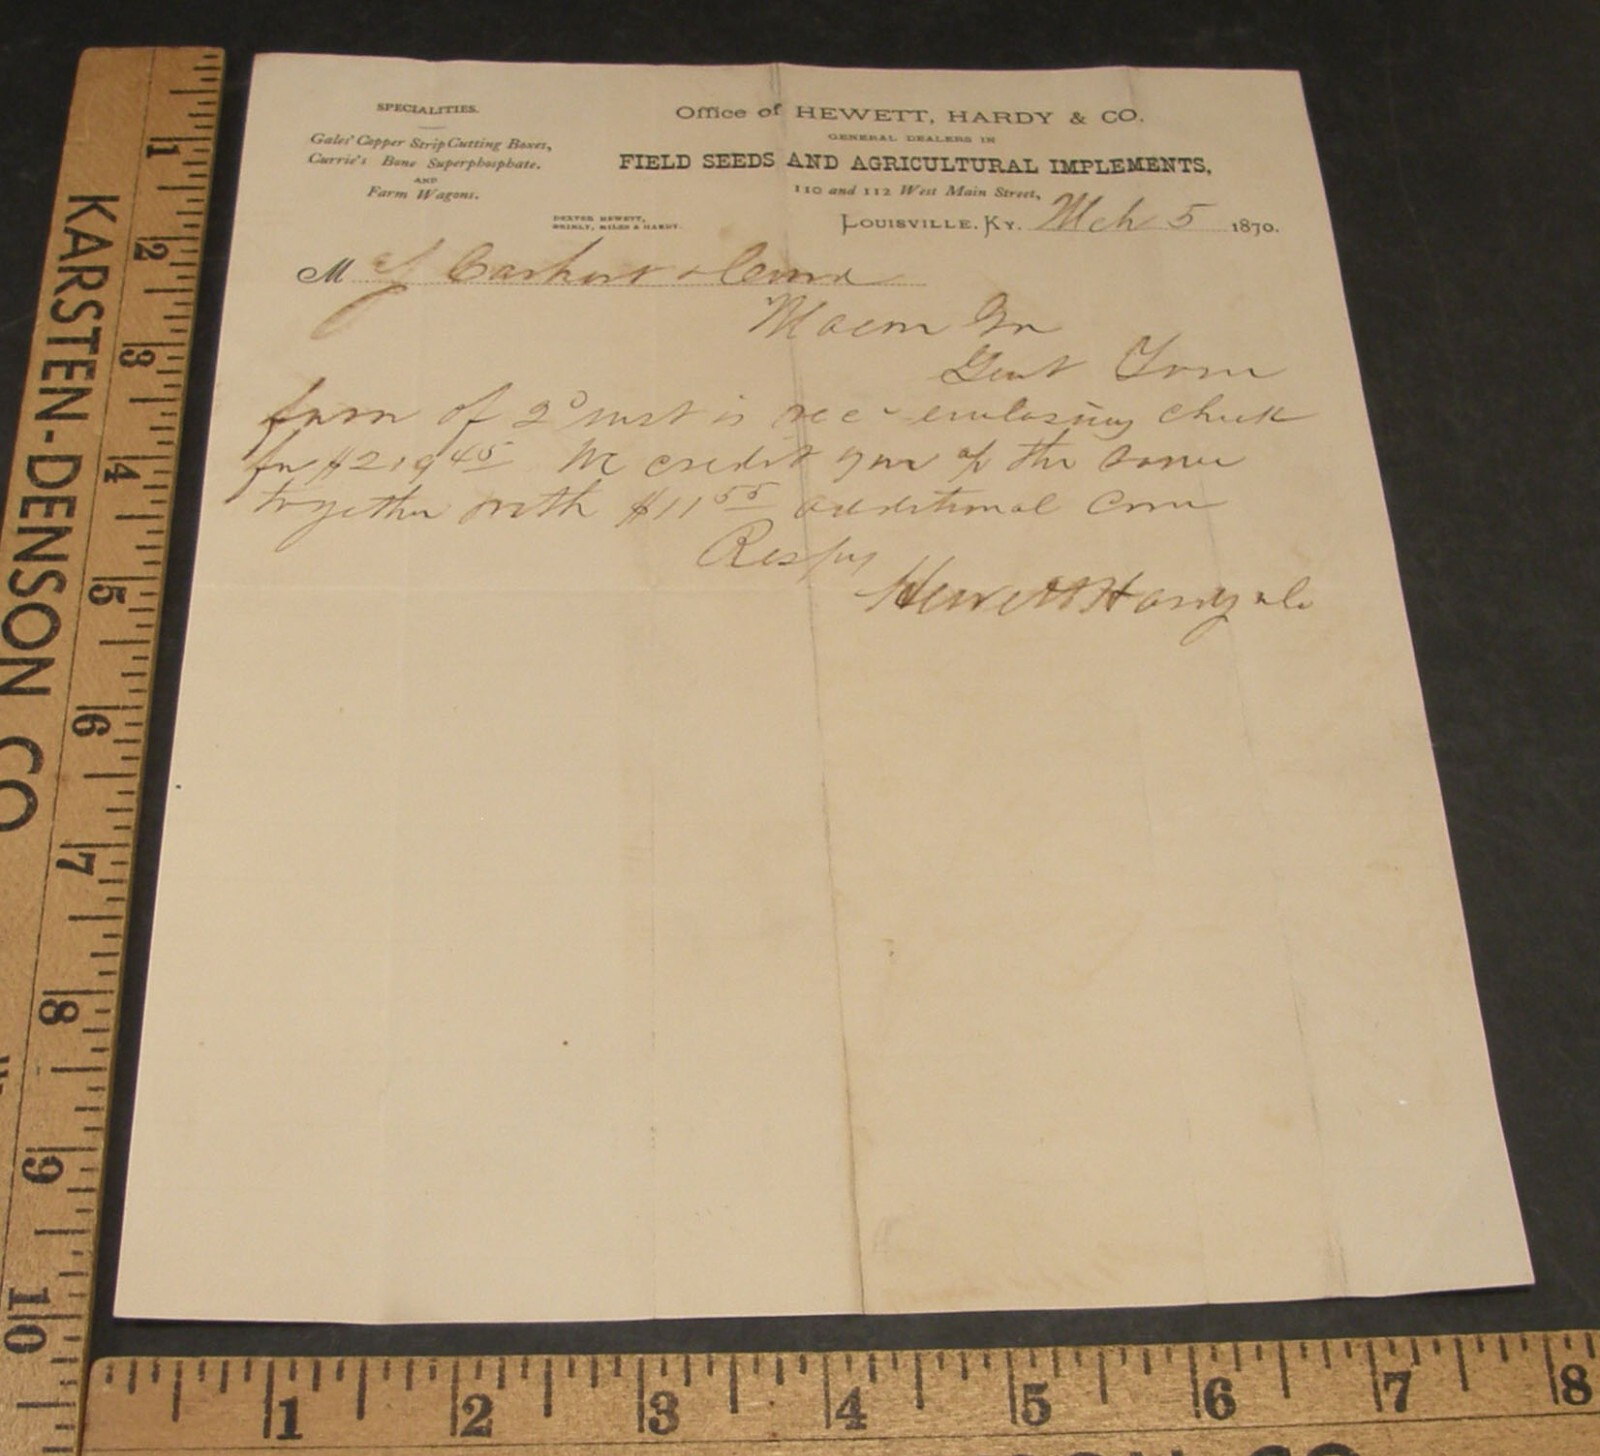 SPECIALITIES.
Gales' Copper Strip Cutting Boxes,
Currie's Bone Superphosphate.
AND
Farm Wagons.
Office of HEWETT, HARDY & CO.
GENERAL DEALERS IN
FIELD SEEDS AND AGRICULTURAL IMPLEMENTS,
110 and 112 West Main Street,
DEXTER HEWETT,
BRINLY, MILES & HARDY.
LOUISVILLE, KY. Mch 5 1870.
M J Carhart & Curd
Macon Ga
Gent Your
favor of 2d inst is rec enclosing check
for $219 45 We credit you of the same
together with $11 55 additional Com
Respy
Hewett Hardy & Co
KARSTEN-DENSON CO
1
2
3
4
5
6
7
8
9
10
1 2 3 4 5 6 7 8